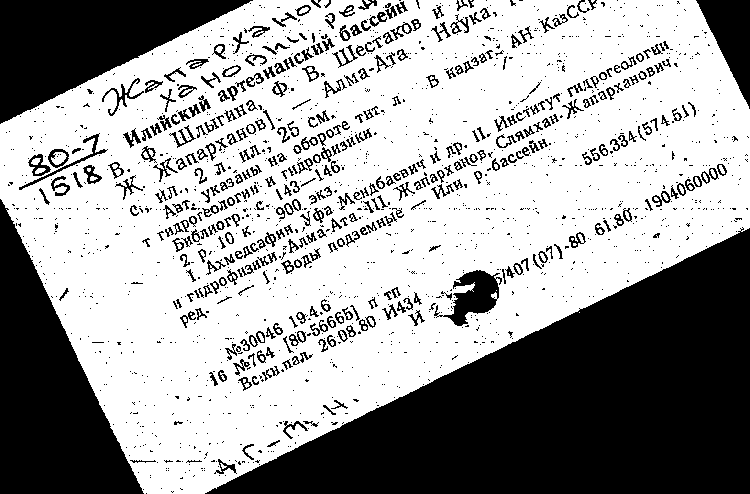 Жапархано
ханович, ред
80-7
1518
Илийский артезианский бассейн
В. Ф. Шлыгина, Ф. В. Шестаков и др
Ж. Жапарханов]. — Алма-Ата : Наука,
с., ил., 2 л. ил.; 25 см.
Авт. указаны на обороте тит. л. В надзаг.: АН КазССР,
т гидрогеологии и гидрофизики.
Библиогр.: с. 143—146.
2 р. 10 к. 900 экз.
I. Ахмедсафин, Уфа Мендбаевич и др. II. Институт гидрогеологии
и гидрофизики. Алма-Ата. III. Жапарханов, Слямхан Жапарханович,
ред. — — 1. Воды подземные — Или, р.-бассейн.
556.334(574.51)
№30046 19.4.6
16 №764 [80-56665] п тп
Вс.кн.пал. 26.08.80 И434
И 2 /407(07)-80 61.80. 1904060000
Д.Г.—М.Н.